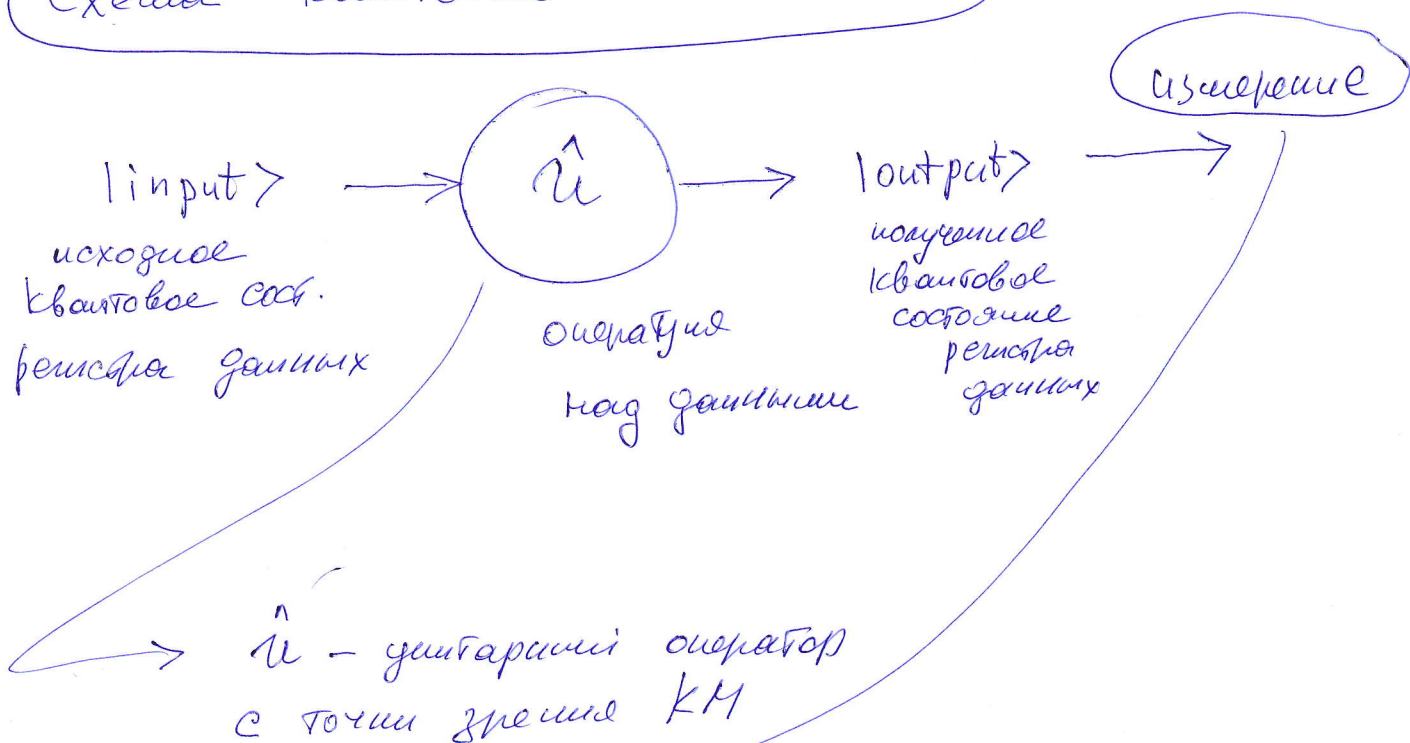 Схема
измерение
|input> → û → |output> →
исходное
квантовое сост.
регистра данных
операция
над данными
полученное
квантовое
состояние
регистра
данных
→ û – унитарный оператор
с точки зрения КМ